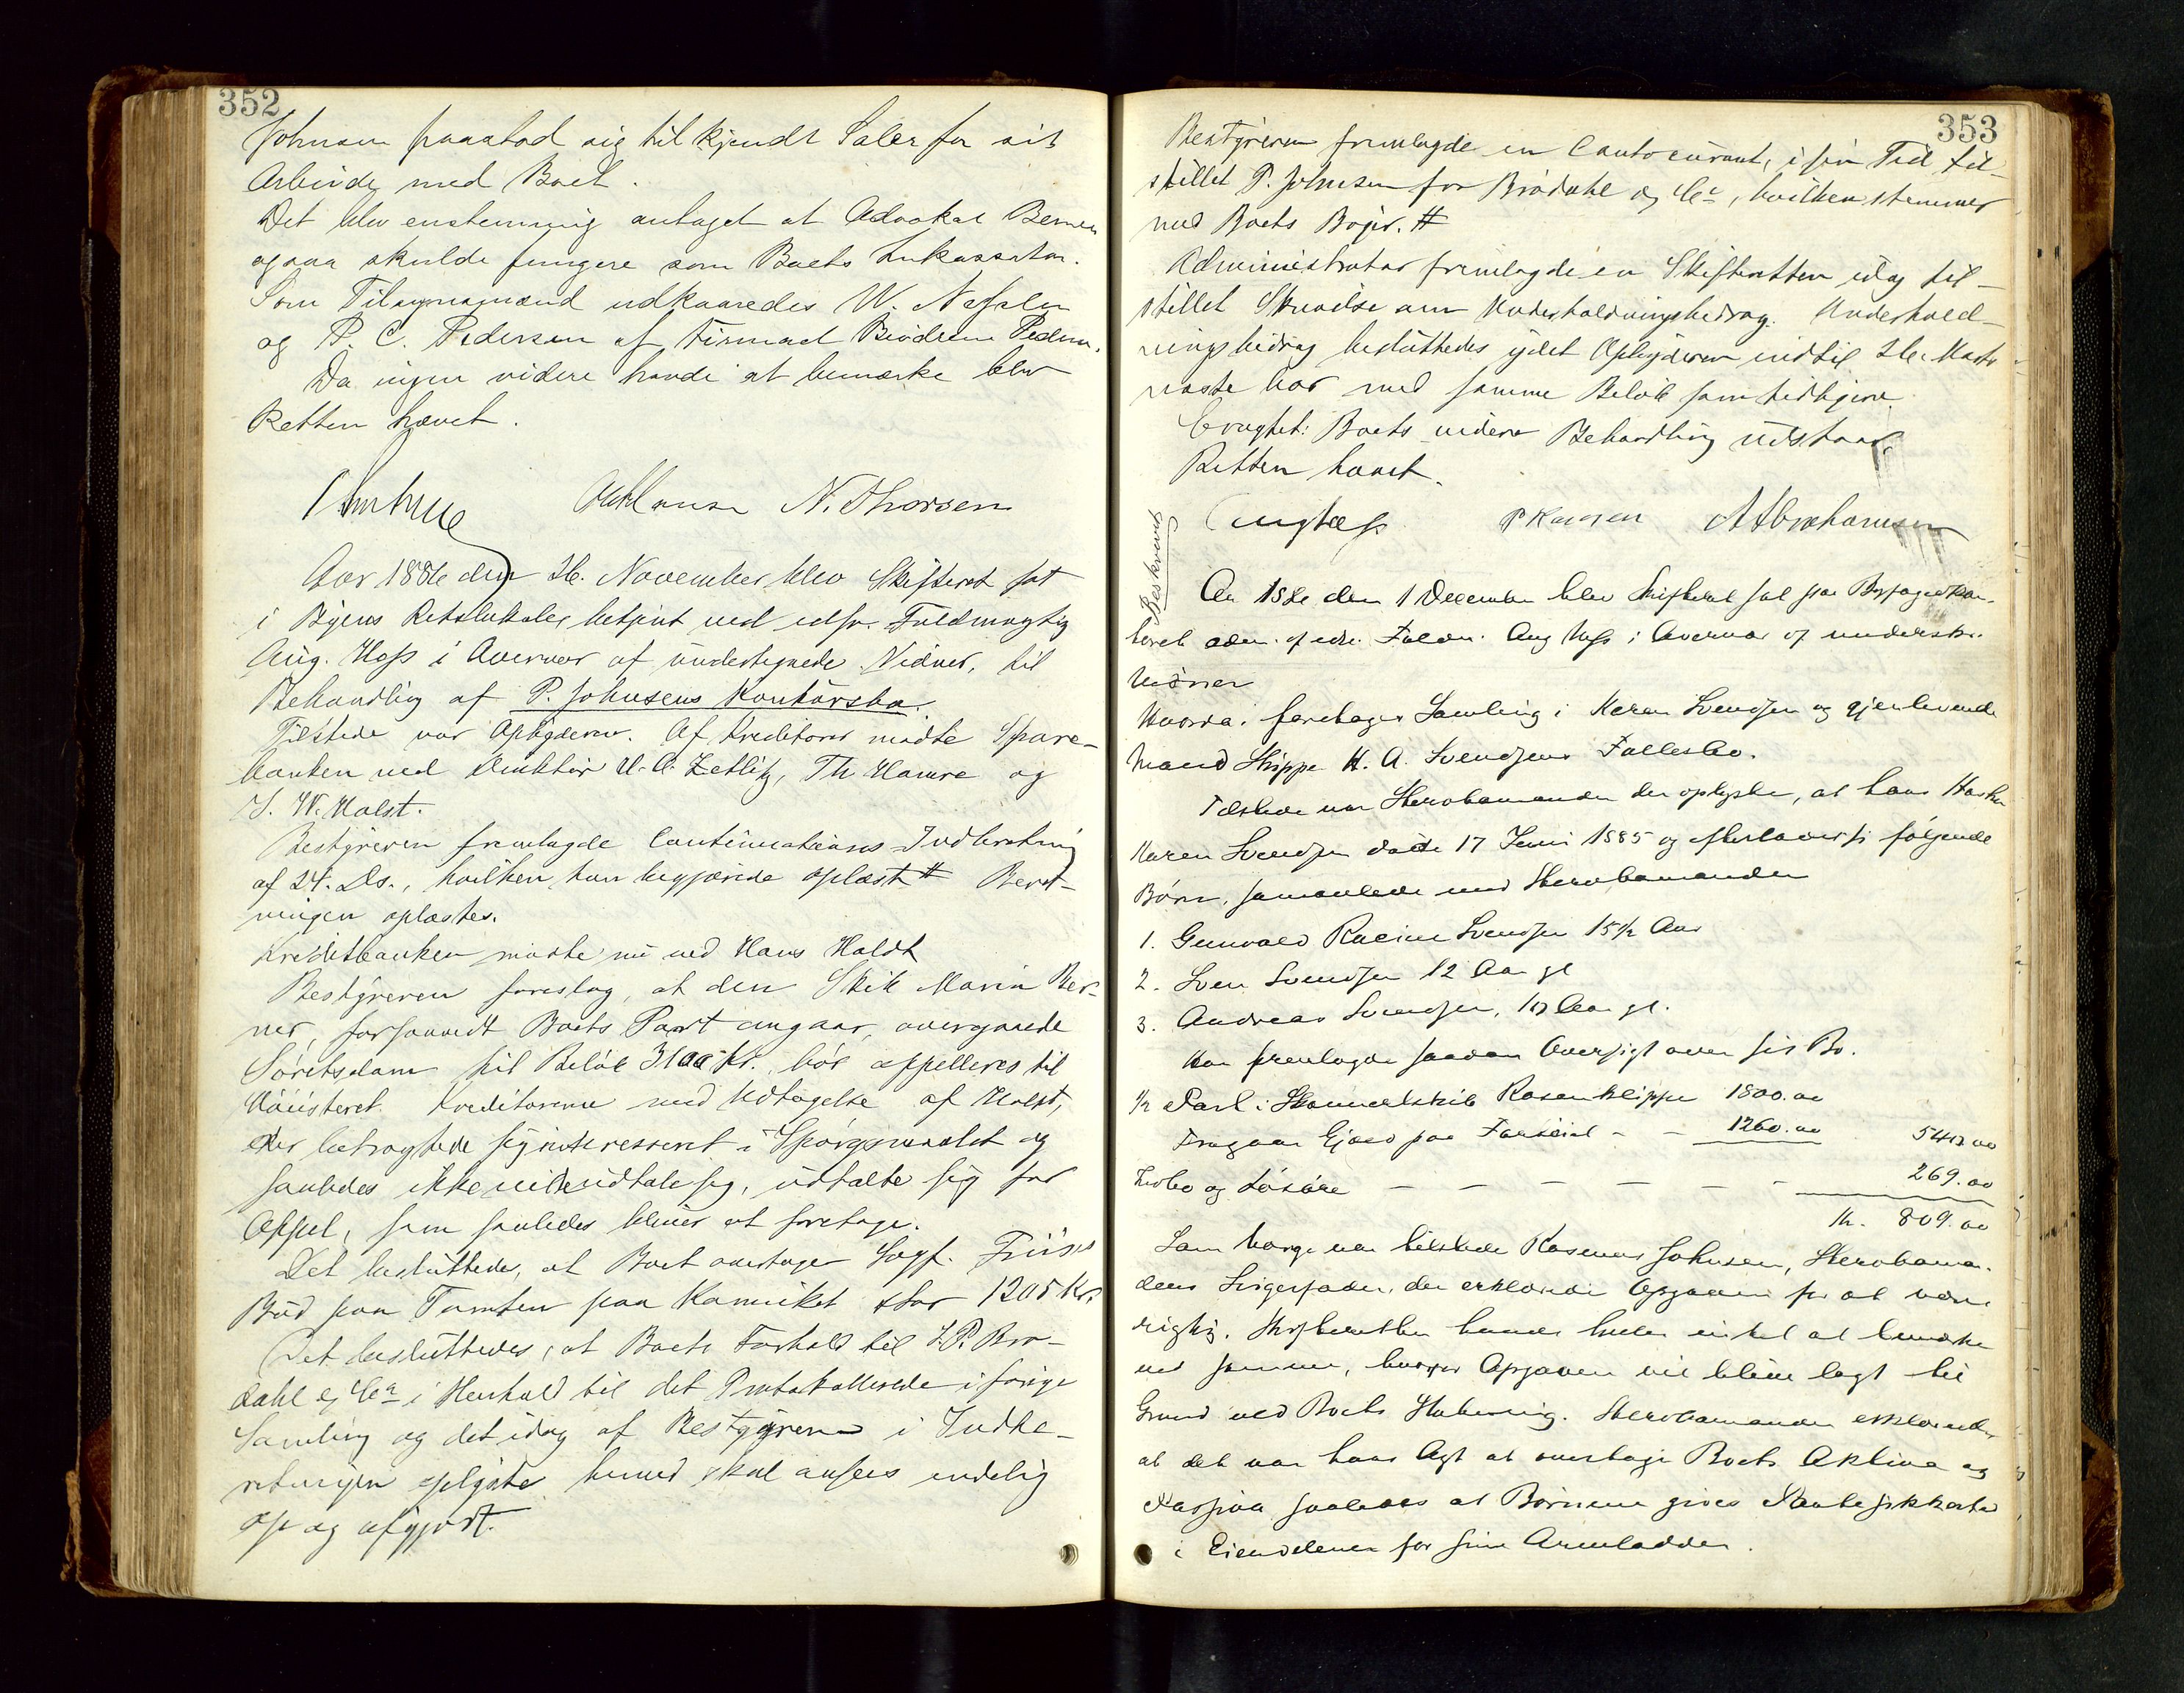 352
Johnsen paastod sig tilkjendt Salær for sit
Arbeide med Boet.
Det blev enstemmig antaget at Advokat Berner
ogsaa skulde fungere som Boets Inkassator.
Som Tilsynsmænd udkaaredes W.
og P. C. Pedersen af Firmaet Brødrene Pedersen.
Da ingen videre havde at bemærke blev
Retten hævet.
N. Thorsen
Aar 1886 den 26. November blev Skifteret sat
i Byens Retslokale, betjent ved edsv. Fuldmægtig
Aug. Hoff i Overvær af undertegnede Vidner, til
Behandling af P. Johnsens Konkursbo.
Tilstede var Opbyderen. Af Kreditorer mødte Spare-
banken ved Direktør U. A. Zetlitz, Th Hamre og
I. W. Holst.
Bestyreren fremlagde Continuations-Indberetning
af 24. Ds., hvilken han begjærede oplæst # Beret-
ningen oplæstes.
Kreditbanken mødte nu ved Hans Holdt
Bestyreren foreslog, at den Skib Maria Ber-
ner, forsaavidt Boets Part angaar, overgaaede
Søretsdom til Beløb 3100 Kr. bør appelleres til
Høiesteret. Kreditorerne med Undtagelse af Holst,
der betragtede sig interesseret i Spørgsmaalet og
saaledes ikke vilde udtale sig, udtalte sig for
Appel, som saaledes bliver at foretage.
Det besluttedes, at Boet antager Sagf. Friises
Bud paa Tomten paa Kanniket stor 1205 Kr.
Det besluttedes, at Boets Forhold til I. P. Bro-
dahl & Co i Henhold til det Protokollerede i forrige
Samling og det idag af Bestyreren i Indbe-
retningen oplyste hermed skal ansees endelig
op og afgjort.
353
Bestyreren fremlagde en Contocurant, i sin Tid til-
stillet P. Johnsen fra Brodahl & Co, hvilken stemmer
med Boets Bøger. #
Administrator fremlagde en Skifteretten idag til-
stillet Skrivelse om Underholdningsbidrag. Underhold-
ningsbidrag besluttedes ydet Opbyderen indtil 26. Marts
næste Aar med samme Beløb som tidligere.
Eragtet: Boets videre Behandling udstaar.
Retten hævet.
Beskrevet
Aug Hoff P Hansen A Abrahamsen
Aar 1886 den 1 December blev Skifteret sat paa Byfogedkon-
toret adm. af edsv. Fuldm. Aug Hoff i Overvær af underskr.
Vidner
Hvorda: foretoges Samling i Karen Svendsen og gjenlevende
Mand Skipper H. A. Svendsens Fællesbo.
Tilstede var Stervbomanden der oplyste, at hans Hustru
Karen Svendsen døde 17 Juni 1885 og efterlader sig følgende
Børn, sammenlede med Stervbomanden
1. Gunvald Rasine Svendsen 15 1/2 Aar
2. Sven Svendsen 12 Aar gl
3. Andreas Svendsen, 10 Aar gl.
Han fremlagde saadan Oversigt over sit Bo.
1/2 Part i Skonnertskib Rosenklippe 1800.00
Fragaar Gjæld paa Fartøiet - - 1260.00 540.00
Indbo og Løsøre - - - - - - 269.00
Kr. 809.00
Som Værge var tilstede Rasmus Johnsen, Stervboman-
dens Svigerfader, der erklærede Opgaven for at være
rigtig. Skifteretten havde heller intet at bemærke
ved samme, hvorfor Opgaven vil blive lagt til
Grund ved Boets Slutning. Stervbomanden erklærede,
at det var hans Agt at overtage Boets Aktiva og
Passiva saaledes at Børnene gives Pantesikkerhed
i Eiendelene for sine Arvelodder.